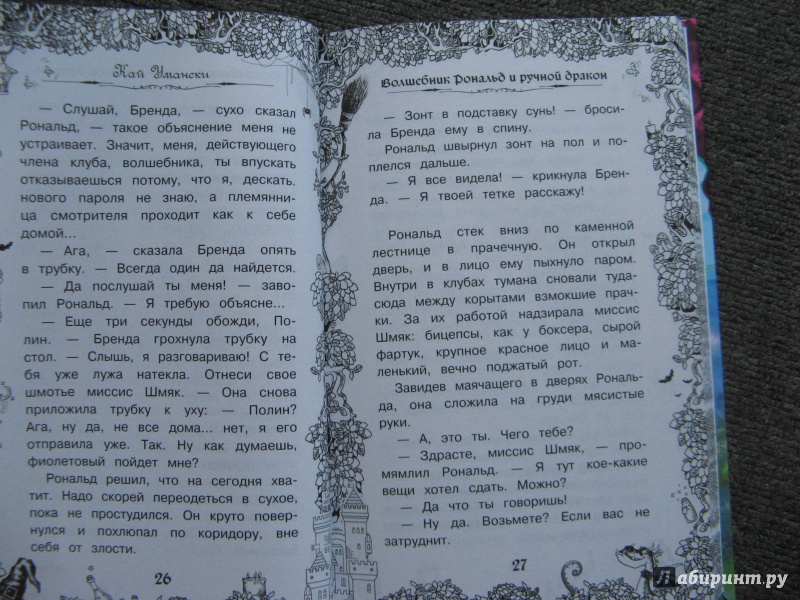 Кай Умански
— Слушай, Бренда, — сухо сказал
Рональд, — такое объяснение меня не
устраивает. Значит, меня, действующего
члена клуба, волшебника, ты впускать
отказываешься потому, что я, дескать,
нового пароля не знаю, а племянни-
ца смотрителя проходит как к себе
домой...
— Ага, — сказала Бренда опять
в трубку. — Всегда один да найдется.
— Да послушай ты меня! — заво-
пил Рональд. — Я требую объясне...
— Еще три секунды обожди, По-
лин. — Бренда грохнула трубку на
стол. — Слышь, я разговариваю! С те-
бя уже лужа натекла. Отнеси свое
шмотье миссис Шмяк. — Она снова
приложила трубку к уху: — Полин?
Ага, ну да, не все дома... нет, я его
отправила уже. Так. Ну как думаешь,
фиолетовый пойдет мне?
Рональд решил, что на сегодня хва-
тит. Надо скорей переодеться в сухое,
пока не простудился. Он круто повер-
нулся и похлюпал по коридору, вне
себя от злости.
26
Волшебник Рональд и ручной дракон
— Зонт в подставку сунь! — броси-
ла Бренда ему в спину.
Рональд швырнул зонт на пол и по-
плелся дальше.
— Я все видела! — крикнула Брен-
да. — Я твоей тетке расскажу!
Рональд стек вниз по каменной
лестнице в прачечную. Он открыл
дверь, и в лицо ему пыхнуло паром.
Внутри в клубах тумана сновали туда-
сюда между корытами взмокшие прач-
ки. За их работой надзирала миссис
Шмяк: бицепсы, как у боксера, сырой
фартук, крупное красное лицо и ма-
ленький, вечно поджатый рот.
Завидев маячащего в дверях Рональ-
да, она сложила на груди мясистые
руки.
— А, это ты. Чего тебе?
— Здрасте, миссис Шмяк, — про-
мямлил Рональд. — Я тут кое-какие
вещи хотел сдать. Можно?
— Да что ты говоришь!
— Ну да. Возьмете? Если вас не
затруднит.
27
Лабиринт.ру